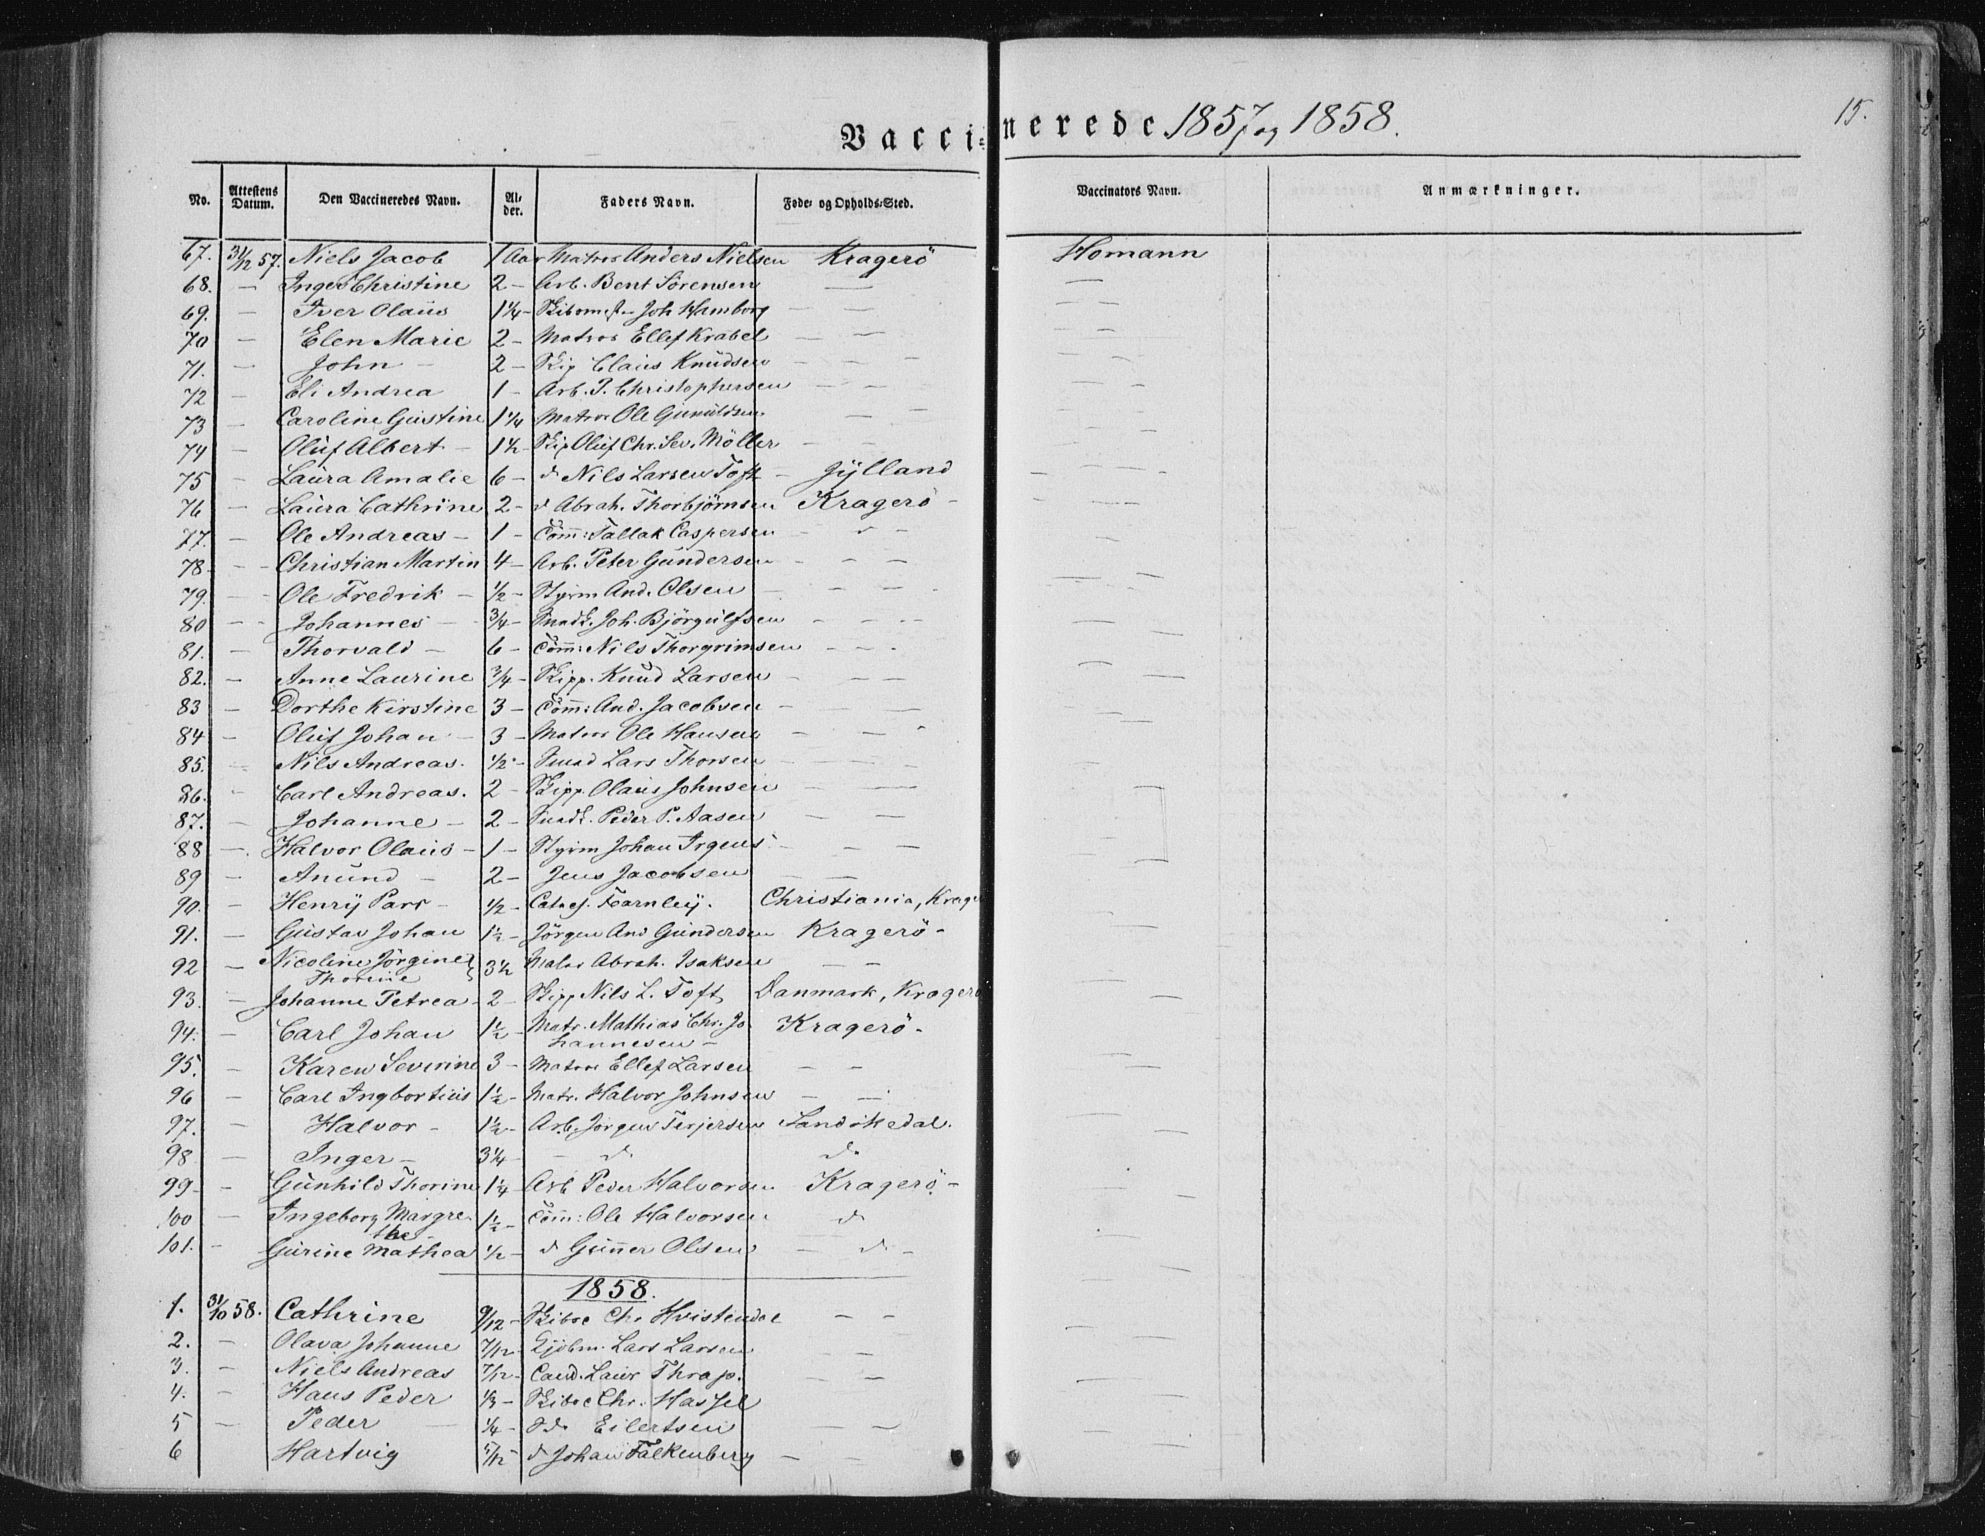 Vaccinerede 1857 og 1858.
15.
No. Attestens Datum. Den Vaccineredes Navn. Alder. Faders Navn. Føde- og Opholds-Sted. Vaccinators Navn. Anmærkninger.
67. 31/12 57. Niels Jacob 1 Aar Matros Anders Nielsen Kragerö Homann
68. — Inger Christine 2 — Arb. Bent Sörensen —
69. — Iver Olaüs 1¼ — Joh Hamborg — —
70 — Elen Marie 2 — Matros Ellef Krabel —
71. — John — 2 — Skip Claüs Knüdsen — — —
72 — Eli Andrea 1 — Arb. P. Christophersen — —
73 — Caroline Güstine 1¼ Matros Ole — —
74 — Olüf Albert — 1½ — Skip Olüf Chr. Sev. Möller — —
75 — Laüra Amalie 6 — d Nils Larsen Toft — Jylland
76 — Laüra Cathrine 2 — d Abrah. Thorbjörnsen Kragerö —
77. — Ole Andreas — 1 — Tömm: Tallak Caspersen — d
78 — Christian Martin 4 — Arb. Peter Gündersen — — —
79. — Ole Fredrik — ½ — Styrm And. Olsen — — —
80 — Johannes — ¾ — Snedk. Joh. Björgülfsen — — —
81. — Thorvald — 6 — Tömm: Nils Thorgrimsen — — —
82. — Anne Laurine ¾ — Skipp. Knüd Larsen — — —
83 — Dorthe Kirstine 3 — Tömm: And. Jacobsen — — —
84 — Olüf Johan — 3 — Matros Ole Hansen — —
85. — Nils Andreas. ½ — Smed Lars Thorsen — — —
86. — Carl Andreas. 2 — Skipp. Olaüs Johnsen — — —
87. — Johanne — 2 — Snedk. Peder P. Aasen — — —
88 — Halvor Olaüs — 1 — Styrm Johan Irgens — — —
89 — Anünd — 2 — Jens Jacobsen — —
90. — Henrÿ Parr — ½ — Fearnleÿ. Christiania, Krage
91. — Güstav Johan 1½ — Jörgen And Gündersen Kragerö —
92 — Nicoline Jörgine Thorine 3½ Matros Abrah. Isaksen — —
93. — Johanne Petrea — 2 — Skipp Nils L. Toft, Danmark, Kragerö
94. — Carl Johan 1½ — Matr. Mathias Chr. Jo-
hannesen — Kragerö —
95. — Karen Severine 3 — Matros Ellef Larsen — —
96 — Carl Ingbortiüs 1½ — Matr. Halvor Johnsen — —
97. — Halvor — 1½ — Arb. Jörgen Terjersen Sandökedal.
98 — Inger — 3¼ — d d
99 — — Günhild Thorine 1¼ Arb Peder Halvorsen Kragerö —
100 — Ingeborg Margre-
the 1½ — Tömm: Ole Halvorsen d
101. — Gürine Mathea ½ — d Günner Olsen — d —
1858.
1. 31/10 58. Cathrine 9/12 — Skibsc Chr Hvistendal — —
2. — Olava Johanne 7/12 — Kjöbm. Lars Larsen —
3. — Niels Andreas 7/12 — Cand. Laür Thrap. — —
4. — Hans Peder ⅓ — Skibsc Chr. Hassel — —
5 — Peder — ¼ — Do Eilertsen — —
6 Hartvig 5/12 — d Johan Falkenberg — —